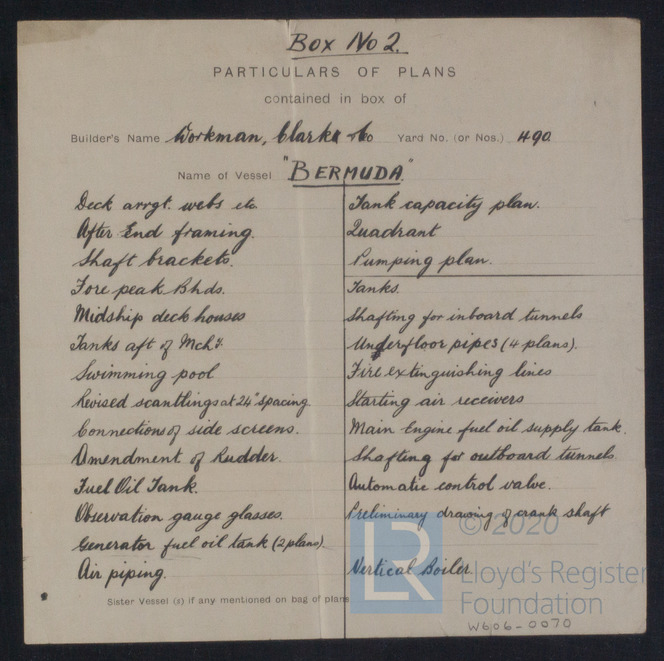 Box No 2.
PARTICULARS OF PLANS
contained in box of
Builder's Name Workman, Clark & Co Yard No. (or Nos.) 490
Name of Vessel "BERMUDA"
Deck arrgt. webs etc
After End framing.
Shaft brackets.
Fore peak Bhds.
Midship deck houses
Tanks aft of Mchy
Swimming pool
Revised scantlings at 24" spacing.
Connections of side screens.
Amendment of Rudder.
Fuel Oil Tank.
Observation gauge glasses.
Generator fuel oil tank (2 plans).
Air piping.
Tank capacity plan.
Quadrant
Pumping plan.
Tanks.
Shafting for inboard tunnels
Underfloor pipes (4 plans).
Fire extinguishing lines
Starting air receivers
Main Engine fuel oil supply tank.
Shafting for outboard tunnels.
Automatic control valve.
Preliminary drawing of crank shaft
Vertical Boiler.
Sister Vessel (s) if any mentioned on bag of plans
LR
© 2020
Lloyd's Register
Foundation
W606-0070